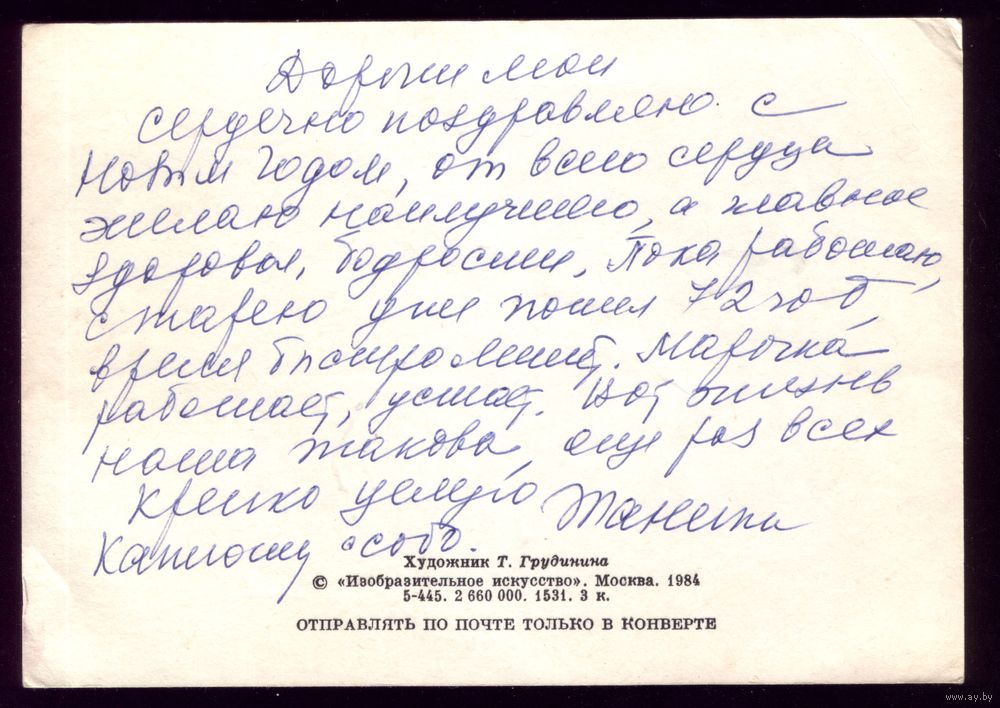 Дорогие мои
сердечно поздравляю с
Новым Годом, от всего сердца
желаю наилучшего, а главное
здоровья, бодрости, Пока работаю,
старею уже пошел 72 год
время быстро летит. Марочка
работает, устает. Вот жизнь
наша такова, еще раз всех
крепко целую
особо.
Художник Т. Грудинина
© «Изобразительное искусство». Москва. 1984
5-445. 2 660 000. 1531. 3 к.
ОТПРАВЛЯТЬ ПО ПОЧТЕ ТОЛЬКО В КОНВЕРТЕ
www.ay.by